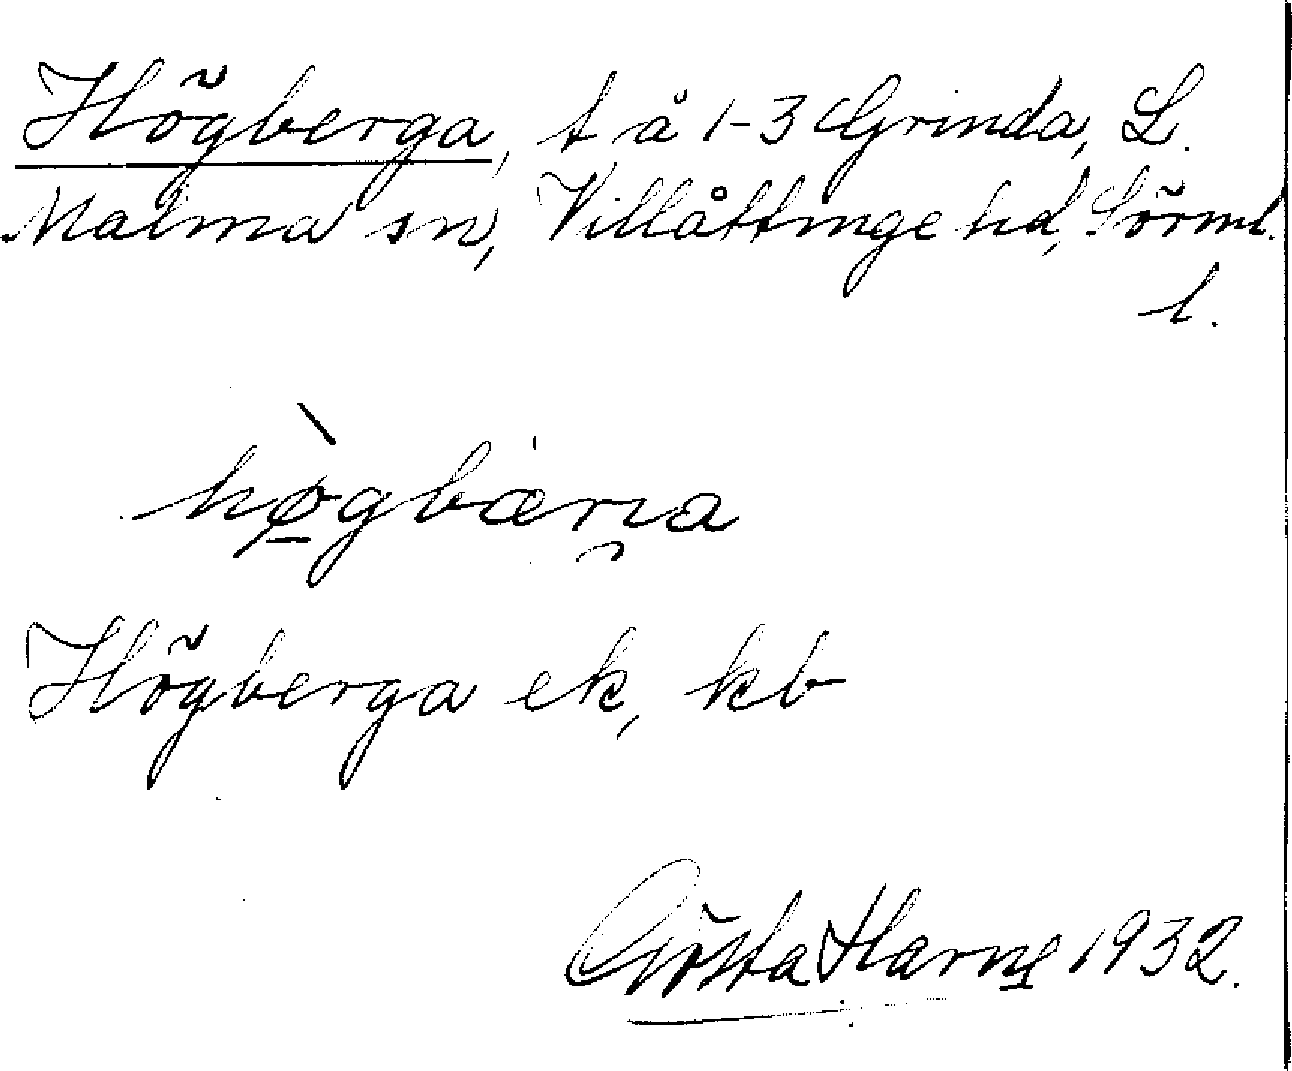 Högberga, t å 1-3 Grinda, L.
Malma sn, Villåttinge hd, Sörml.
l.
hø̀gbærɪa
Högberga ek, kb
Gösta Harne 1932.